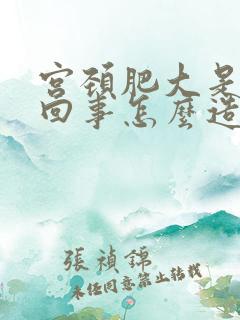 宮頚肥大是
回事怎麼造
張禎錦
未经同意禁止转载